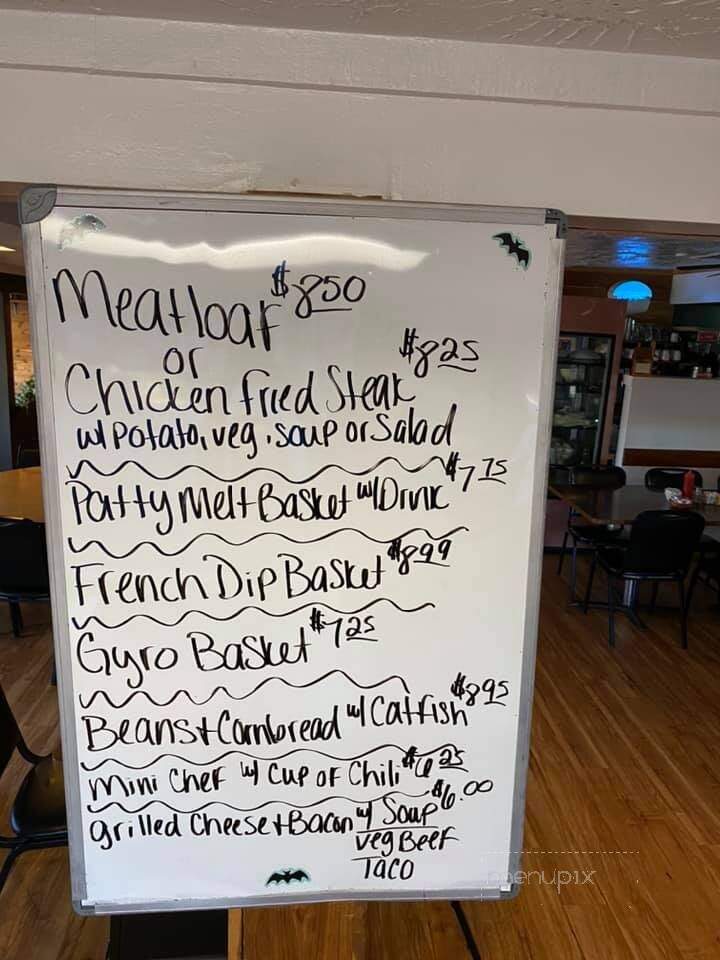 Meatloaf $8.50
or
Chicken Fried Steak $8.25
w/ Potato, veg, soup or Salad
Patty Melt Basket w/ Drink $7.75
French Dip Basket $8.99
Gyro Basket $7.25
Beans + Cornbread w/ Catfish $8.95
Mini Chef w/ Cup of Chili $6.25
grilled Cheese + Bacon w/ Soup $6.00
veg Beef
Taco
menupix